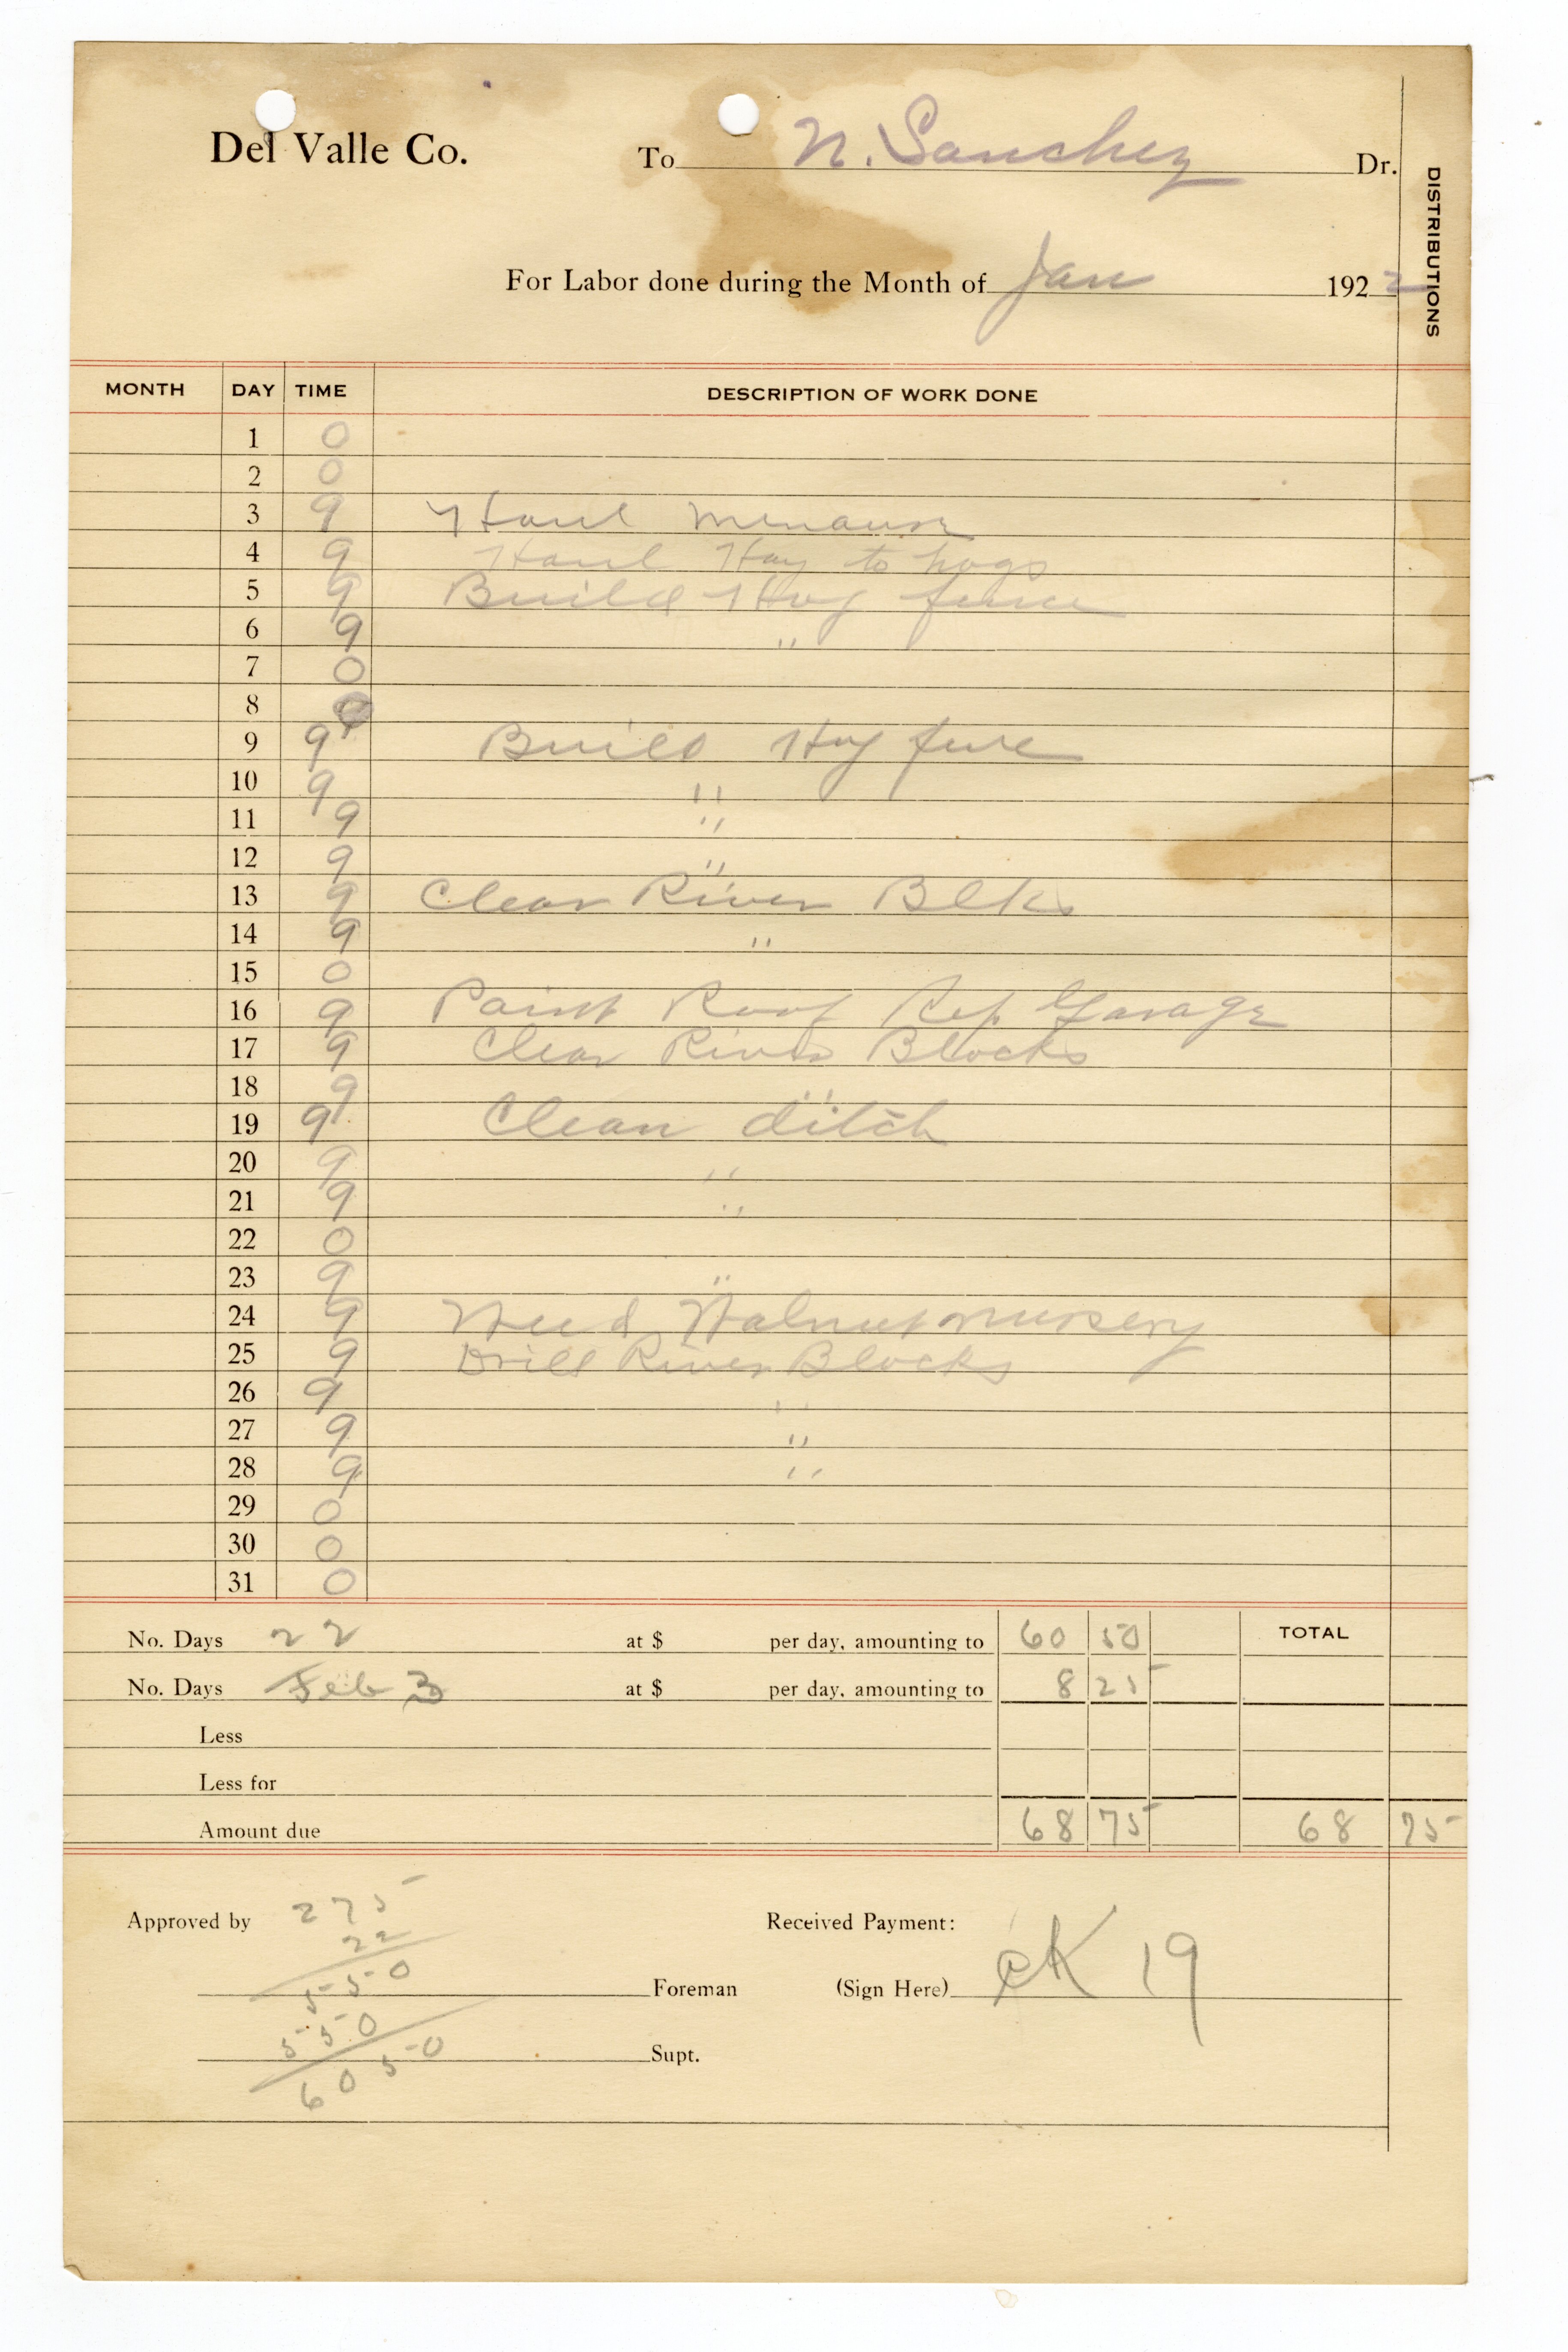 Del Valle Co. To N. Sanchez Dr.
DISTRIBUTIONS
For Labor done during the Month of Jan 1922
MONTH DAY TIME DESCRIPTION OF WORK DONE
1 0
2 0
3 9 Haul menaure
4 9 Haul Hay to hogs
5 9 Build Hog fence
6 9 "
7 0
8 0
9 9 Build Hog fence
10 9 "
11 9 "
12 9 "
13 9 Clear River Blks
14 9 "
15 0
16 9 Paint Roof Rep. Garage
17 9 Clear River Blocks
18 9 "
19 9 Clean ditch
20 9 "
21 9 "
22 0
23 9 "
24 9 Weed Walnut nursery
25 9 Drill River Blocks
26 9 "
27 9 "
28 9 "
29 0
30 0
31 0
No. Days 22 at $ per day, amounting to 60 50 TOTAL
No. Days Feb 3 at $ per day, amounting to 8 25
Less
Less for
Amount due 68 75 68 75
Approved by 275 Received Payment:
22
550 Foreman (Sign Here) CK 19
550
6050 Supt.